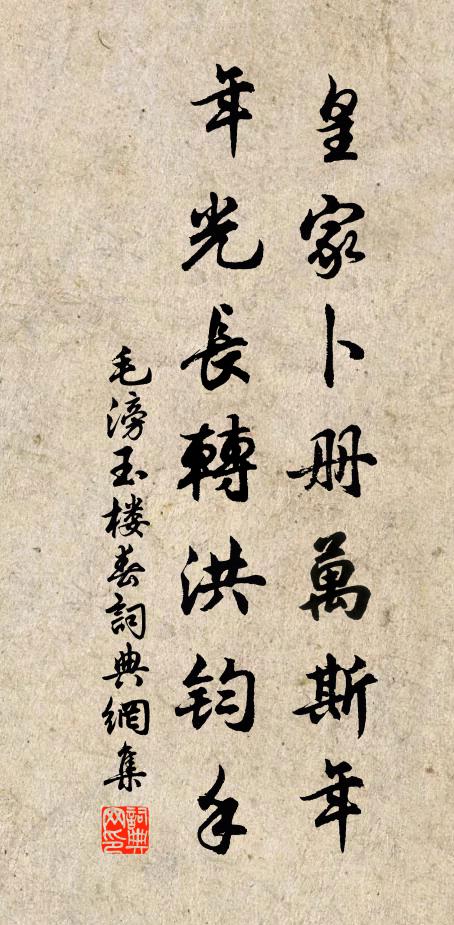 皇家卜册萬斯年
年光長轉洪钧手
毛滂玉楼春詞典網集
詞典网印